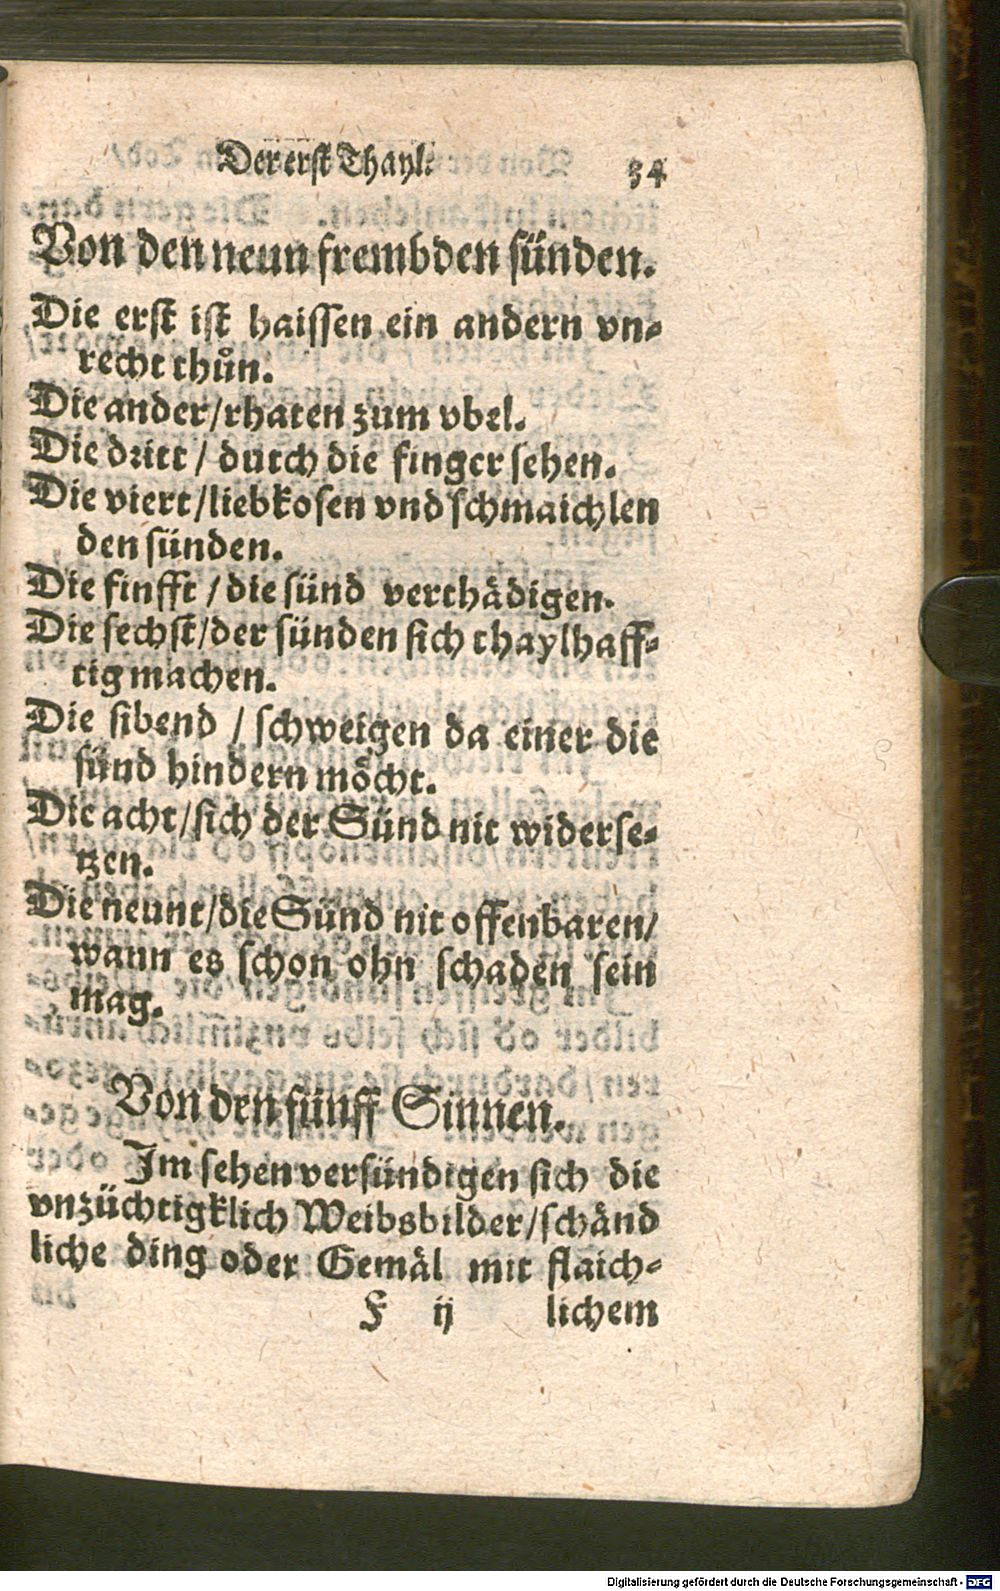 Der erst Thayl. 34
Von den neun frembden sünden.
Die erst ist haissen ein andern vn⸗
recht thůn.
Die ander/rhaten zum vbel.
Die dritt / durch die finger sehen.
Die viert/liebkosen vnd schmaichlen
den sünden.
Die finfft / die sünd verthädigen.
Die sechst/der sünden sich thaylhaff⸗
tig machen.
Die sibend / schweigen da einer die
sünd hindern möcht.
Die acht/sich der Sünd nit widerse⸗
tzen.
Die neunt/die Sünd nit offenbaren/
wann es schon ohn schaden sein
mag.
Von den fünff Sinnen.
Im sehen versündigen sich die
vnzüchtigklich Weibsbilder/schänd
liche ding oder Gemäl mit flaich⸗
F ij lichem
Digitalisierung gefördert durch die Deutsche Forschungsgemeinschaft - DFG